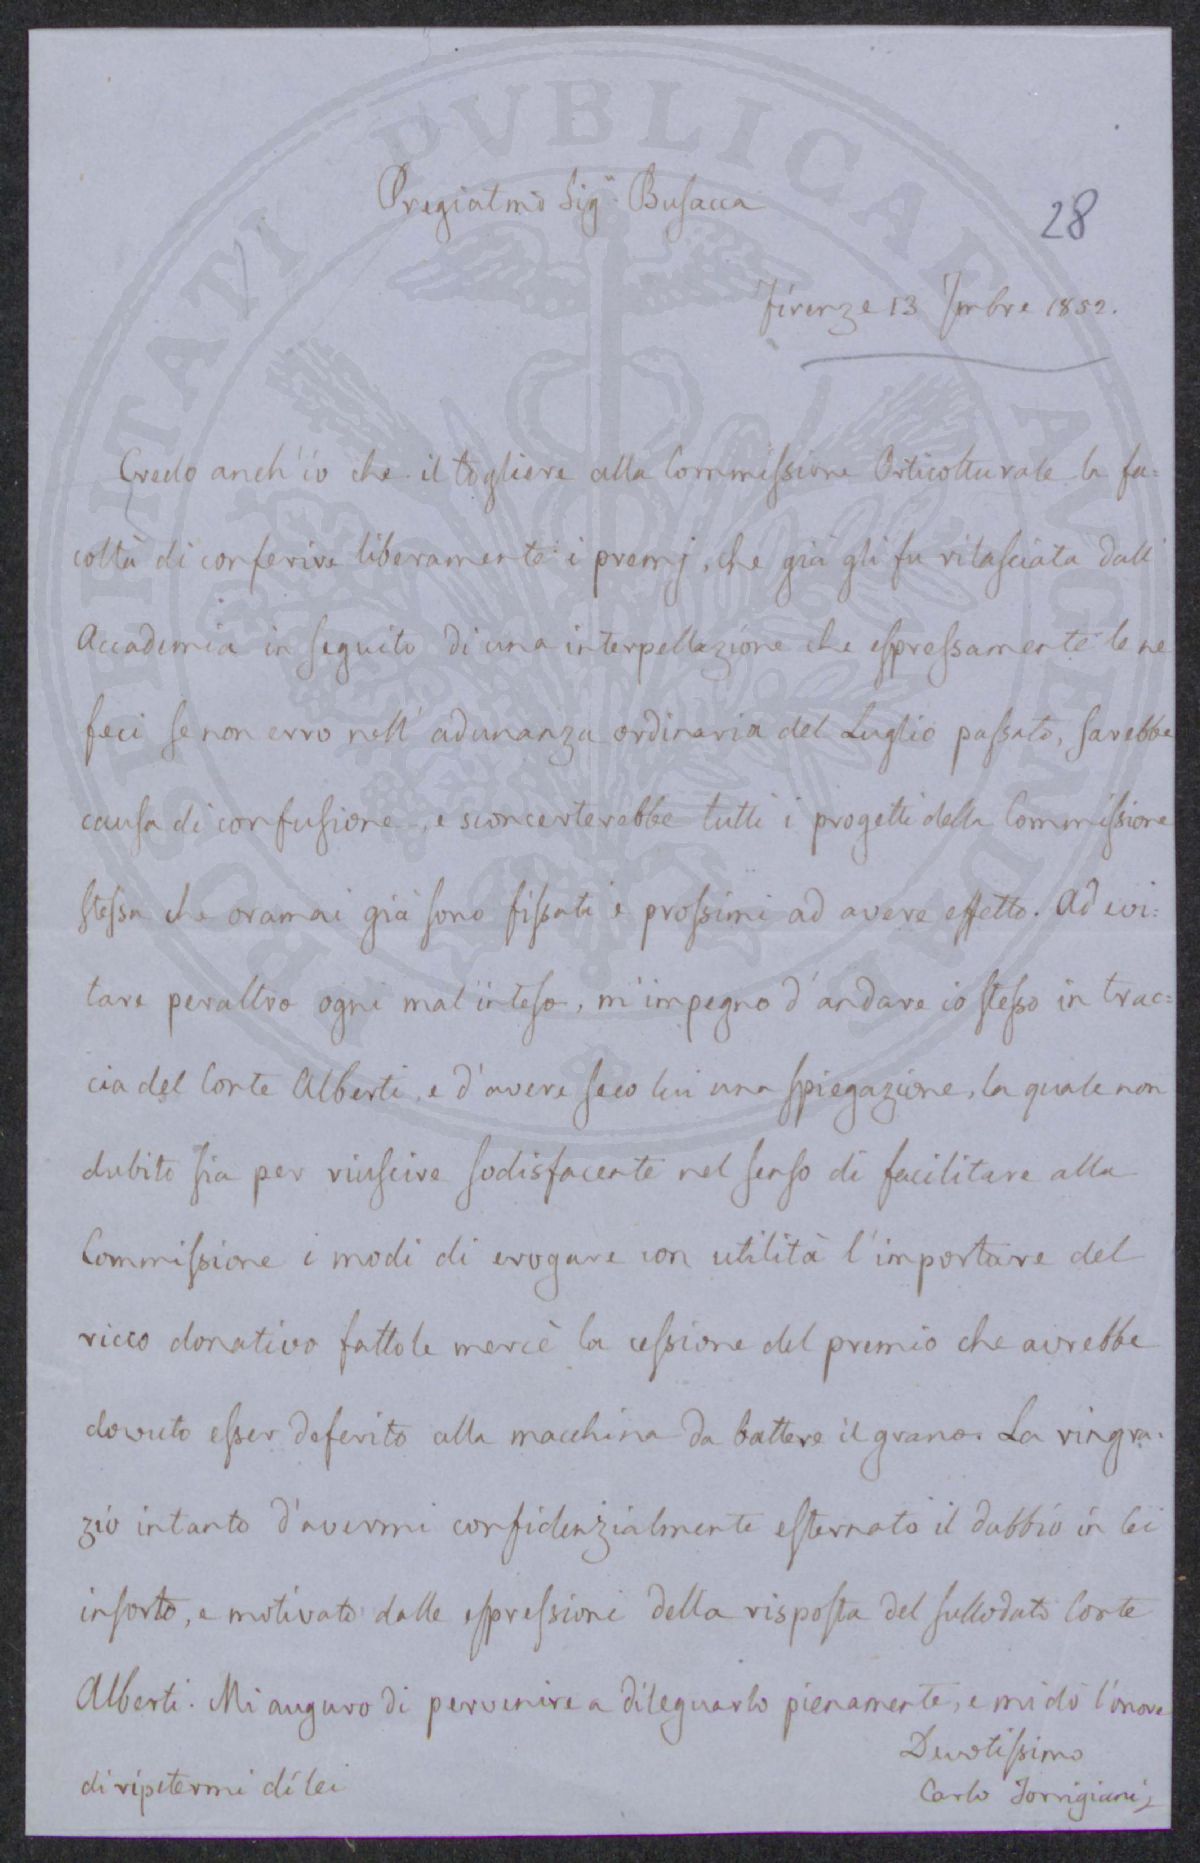 Pregiatmo Sigr Busacca
28
Firenze 13 7mbre 1852.
Credo anch'io che il togliere alla Commissione Orticolturale la fa=
coltà di conferire liberamente i premj, che già gli fu rilasciata dall'
Accademia in seguito di una interpellazione che espressamente le ne
feci se non erro nell'adunanza ordinaria del Luglio passato, sarebbe
causa di confusione, e sconcerterebbe tutti i progetti della Commissione
stessa che oramai già sono fissati e prossimi ad avere effetto. Ad evi=
tare peraltro ogni mal'inteso, m'impegno d'andare io stesso in trac=
cia del Conte Alberti, e d'avere seco lui una spiegazione, la quale non
dubito sia per riuscire sodisfacente nel senso di facilitare alla
Commissione i modi di erogare con utilità l'importare del
ricco donativo fattole mercè la cessione del premio che avrebbe
dovuto esser deferito alla macchina da battere il grano. La ringra=
zio intanto d'avermi confidenzialmente esternato il dubbio in lei
insorto, e motivato dalle espressioni della risposta del sullodato Conte
Alberti. Mi auguro di pervenire a dileguarlo pienamente, e mi dò l'onore
di ripetermi di lei
Devotissimo
Carlo Torrigiani
PVBLICAE